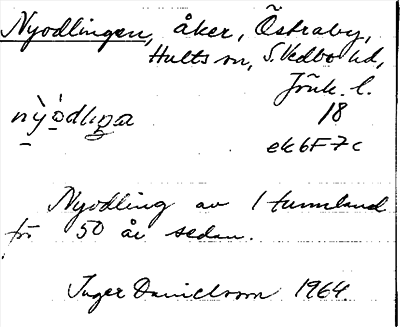 Nyodlingen, åker, Östraby,
Hults sn, S. Vedbo hd,
Jönk. l.
18
ek 6F7c
Nyodling av 1 tunnland
för 50 år sedan.
Inger Danielsson 1964.